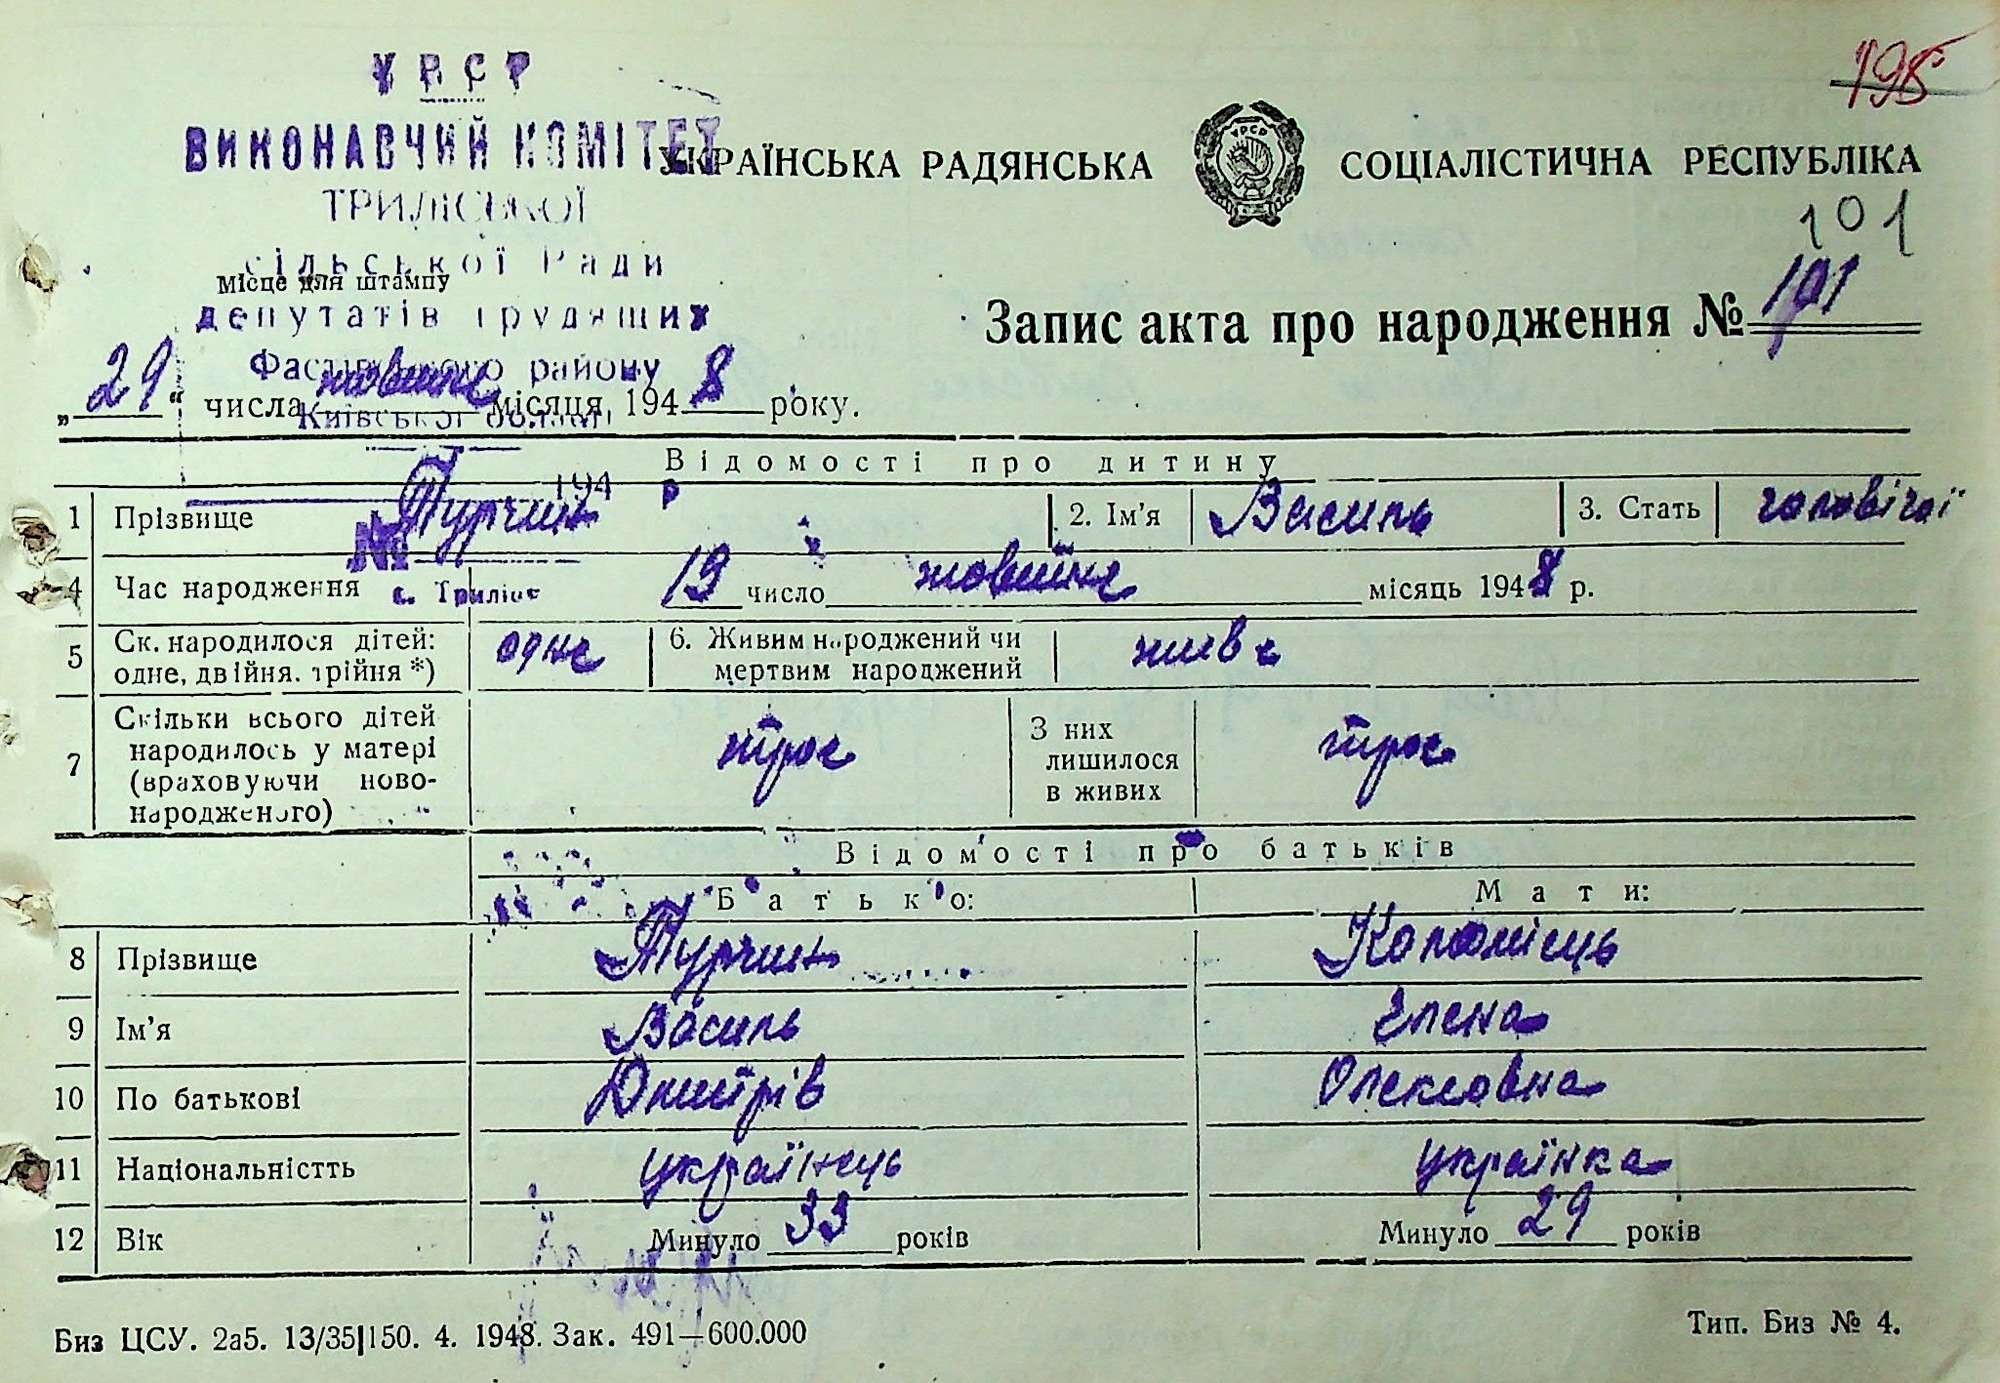 195
УРСР
ВИКОНАВЧИЙ КОМІТЕТ
ТРИЛІСЬКОЇ
сільської Ради
депутатів трудящих
Фастівського району
Київської області
194 р
№
с. Триліси
УКРАЇНСЬКА РАДЯНСЬКА СОЦІАЛІСТИЧНА РЕСПУБЛІКА
УРСР
101
Місце для штампу
Запис акта про народження № 101
„29“ числа жовтня місяця 1948 року.
Відомості про дитину
1 Прізвище Турчин 2. Ім'я Василь 3. Стать чоловічої
4 Час народження 19 число жовтня місяць 1948 р.
5 Ск. народилося дітей: одне 6. Живим народжений чи живе
одне, двійня. трійня *) мертвим народжений
7 Скільки всього дітей троє З них троє
народилось у матері лишилося
(враховуючи ново- в живих
народженого)
Відомості про батьків
Батько: Мати:
8 Прізвище Турчин Коломієць
9 Ім'я Василь Елена
10 По батькові Дмитрів Олексовна
11 Національністть українець українка
12 Вік Минуло 33 років Минуло 29 років
Биз ЦСУ. 2а5. 13/35|150. 4. 1948. Зак. 491—600.000
Тип. Биз № 4.